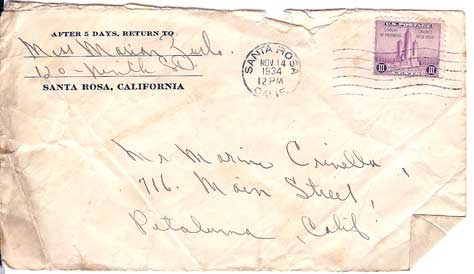 AFTER 5 DAYS, RETURN TO
Miss Marion
120 - Ninth St
SANTA ROSA, CALIFORNIA
SANTA ROSA
NOV 14
1934
12 PM
CALIF.
U.S. POSTAGE
CENTURY OF PROGRESS
CHICAGO 1833-1933
III CENTS III
Mr Marino Crinella
716. Main Street,
Petaluma, Calif